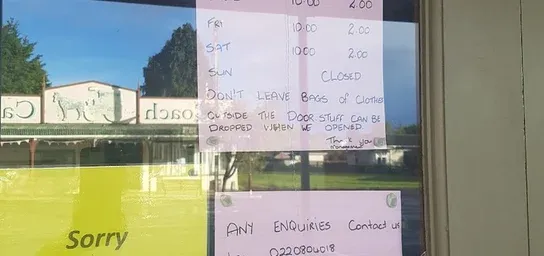 10:00 2.00
FRI 10:00 2.00
SAT 10:00 2.00
SUN CLOSED
DON'T LEAVE BAGS of CLOTHES
OUTSIDE THE DOOR STUFF CAN BE
DROPPED WHEN WE OPENED
Thank you
Management
ANY ENQUIRIES Contact us
0220804018
Sorry
Ca
oach